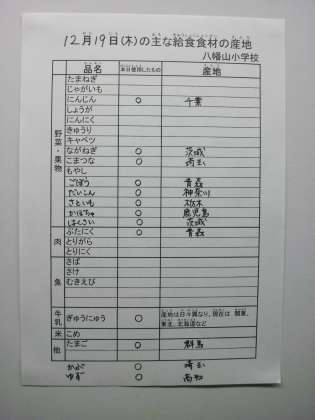 12月19日(木)の主な給食食材の産地
八幡山小学校
品名 本日使用したもの 産地
野菜・果物
たまねぎ
じゃがいも
にんじん ○ 千葉
しょうが
にんにく
きゅうり
キャベツ
ながねぎ ○ 茨城
こまつな ○ 埼玉
もやし
ごぼう ○ 青森
だいこん ○ 神奈川
さといも ○ 栃木
かぼちゃ ○ 鹿児島
はくさい ○ 茨城
肉
ぶたにく ○ 青森
とりがら
とりにく
魚
さば
さけ
むきえび
牛乳 ぎゅうにゅう ○ 産地は日々異なり、現在は 関東、
東北、北海道など
米 こめ
他 たまご ○ 群馬
かぶ ○ 埼玉
ゆず ○ 高知